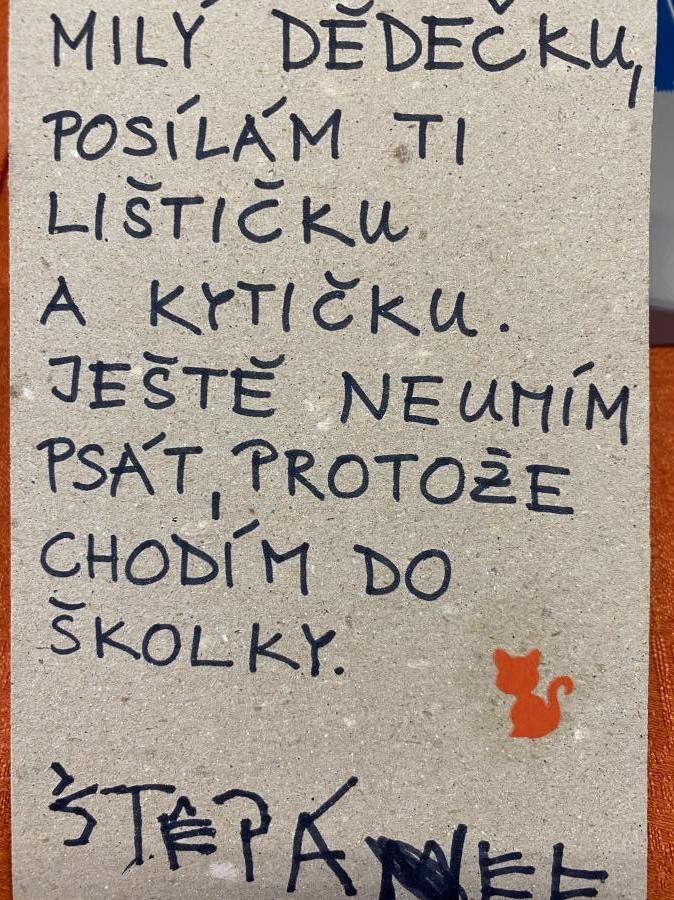 MILÝ DĚDEČKU,
POSÍLÁM TI
LIŠTIČKU
A KYTIČKU.
JEŠTĚ NEUMÍM
PSÁT, PROTOŽE
CHODÍM DO
ŠKOLKY.